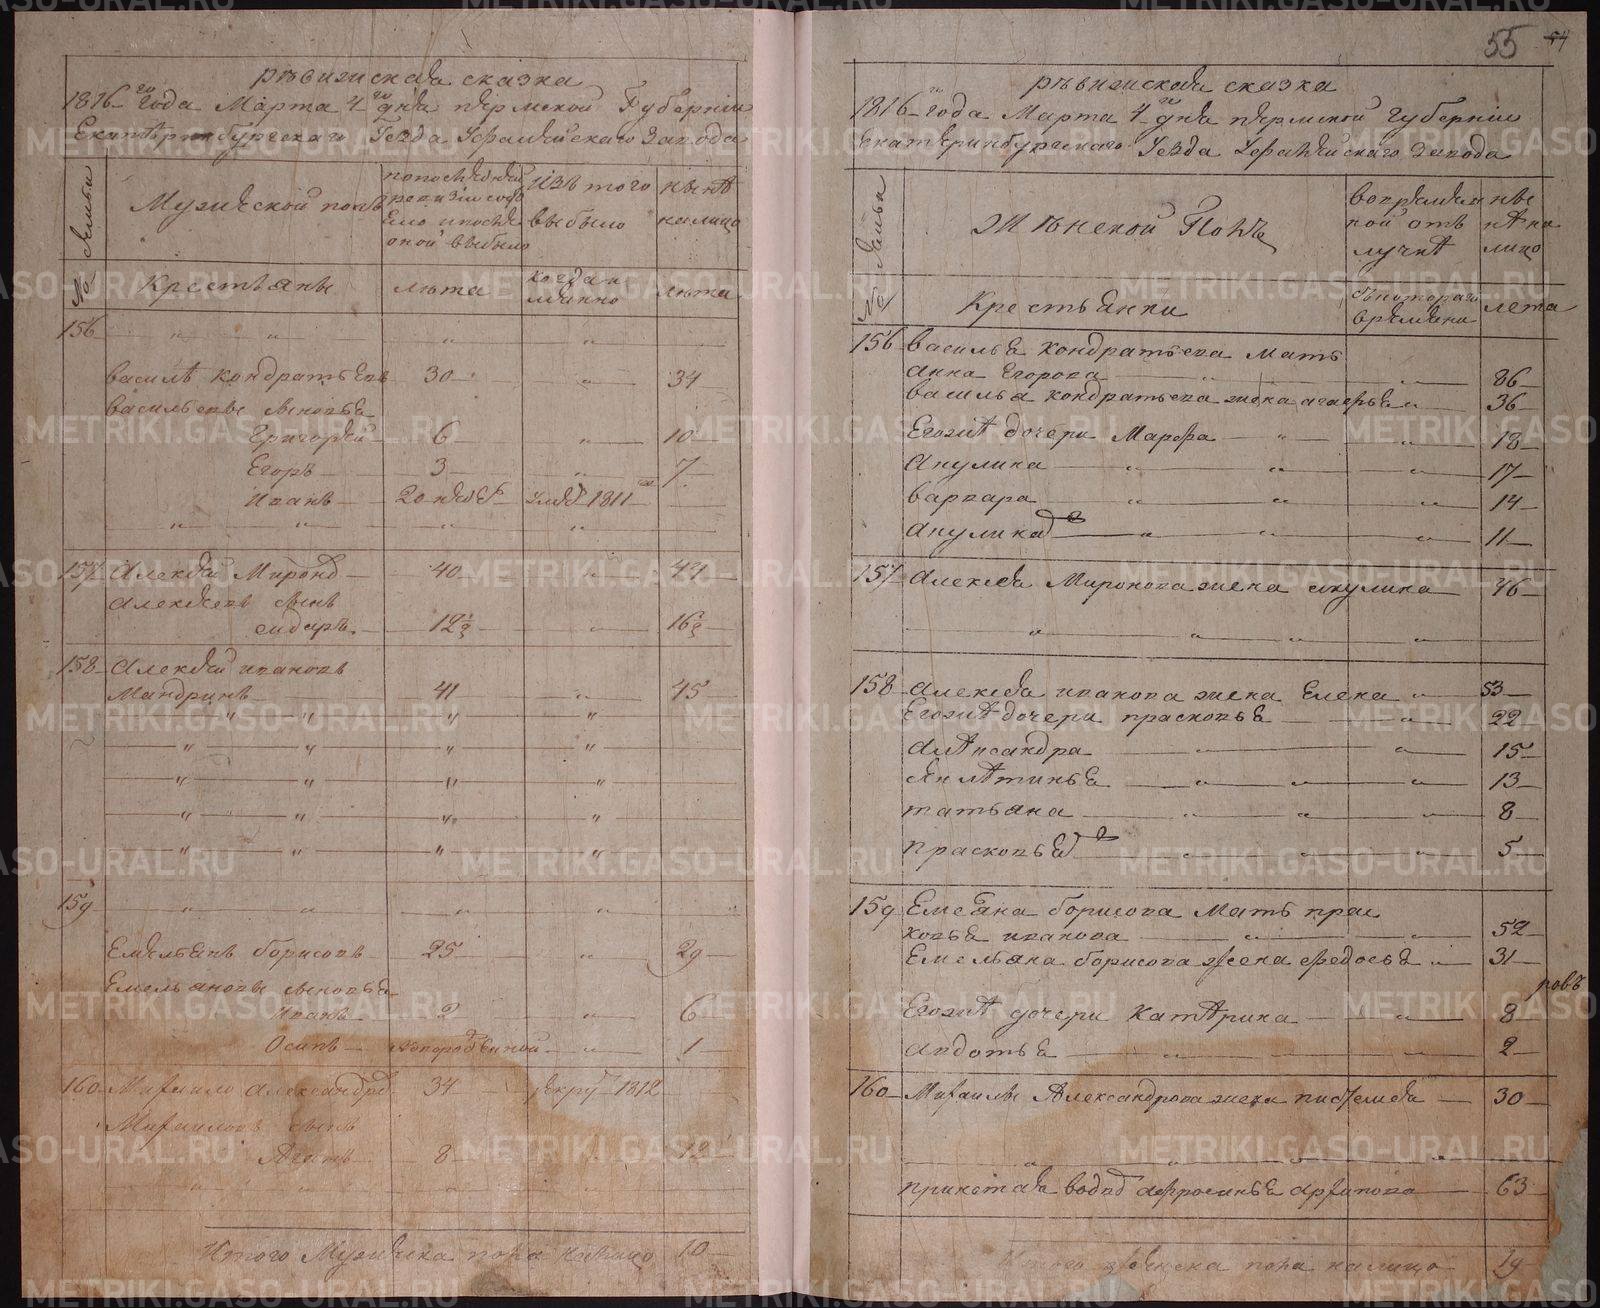 55 54
ревижская сказка
1816 го года Марта 4 го дня пермской Губернии
Екатеринбургскаго Уезда Уфалейскаго Завода
№ семьи
Мужеской полъ
по последней ревизии состояло и после оной выбыло
Изъ того выбыло
ныне на лицо
Крестьяне
лета
когда именно
лета
156
василей кондратьевъ 30 34
васильевы сыновья
Григорей 6 10
Егоръ 3 7
Иванъ 20 недель умре 1811
157 Алексей Миронов 40 44
Алексеевъ сынъ
сидаръ 12½ 16½
158 Алексей ивановъ
Мандринъ 41 45
159
Емельянъ борисовъ 25 29
Емельяновы сыновья
Иванъ 2 6
Осипъ новорожденной 1
160 Михаило Александров 34 рекру 1812
Михаиловъ сынъ
Агапъ 8 12
Итого Мужеска пола налицо 10
ревижская сказка
1816 го года Марта 4 го дня пермской Губернии
екатеринбургскаго Уезда Уфалейскаго завода
№ семьи
Женской Полъ
во временной отлучке
ныне на лицо
Крестьянки
съ котораго времяни
лета
156 василья кондратьева Мать
анна Егорова 86
василья кондратьева жена агафья 36
Егожъ дочери Марфа 18
Акулина 17
варвара 14
Акулина 2 11
157 Алексея Миронова жена акулина 46
158 Алексея иванова жена Елена 53
Егожъ дочери прасковья 22
Александра 15
Екатерина 13
татьяна 8
прасковья 2 5
159 Емеяна борисова Мать прас
ковья иванова 52
Емельяна борисова жена федосья 31
ровъ
Егожъ дочери Катерина 8
Авдотья 2
160 Михаилы Александрова жена пистемея 30
пристая вод афросинья архипова 63
Итого женска пола налицо 19
METRIKI.GASO-URAL.RU